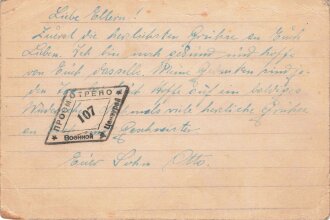 Liebe Eltern!
Zuerst die herzlichsten Grüße an Euch
Lieben. Ich bin noch gesund und hoffe
von Euch dasselbe. Meine Gedanken sind je-
den Ich hoffe auf ein baldiges
viele herzliche Grüße
an Geschwister.
Euer Sohn Otto.
ПРОСМОТРЕНО
107
Военной Цензурой